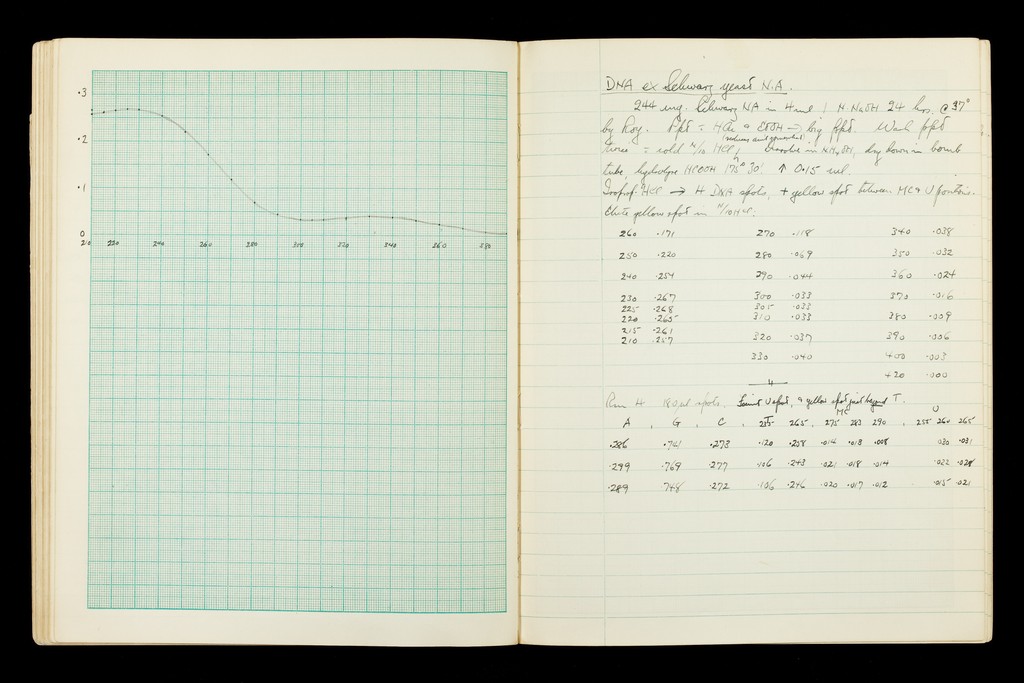 .3
.2
.1
0
210 220 240 260 280 300 320 340 360 380
DNA ex Schwarz yeast N.A.
244 mg. Schwarz NA in 4 ml N. NaOH 24 hrs. @ 37°
by Roy. Ppt = HCl + EtOH → big ppt. Wash ppt
= cold N/10 HCl, dissolve in NH4OH, dry down in bomb
tube, hydrolyse HCOOH 175° 30' ↑ 0.15 ml.
Isoprop. HCl → 4 DNA spots, + yellow spot between MC + U positions.
Elute yellow spot in N/10 HCl:
260 .171 270 .118 340 .038
250 .220 280 .069 350 .032
240 .254 290 .044 360 .024
230 .267 300 .033 370 .016
225 .268 305 .033
220 .265 310 .033 380 .009
215 .261
210 .257 320 .037 390 .006
330 .040 400 .003
420 .000
4
Run 4 spots. Faint U spot, + yellow spot just beyond T.
T MC U
A , G , C , 235 265, 275 283 290 , 255 260 265
.286 .741 .273 .120 .258 .014 .018 .008 .030 .031
.299 .769 .277 .106 .243 .021 .018 .014 .022 .028
.289 .748 .272 .106 .246 .020 .017 .012 .015 .021